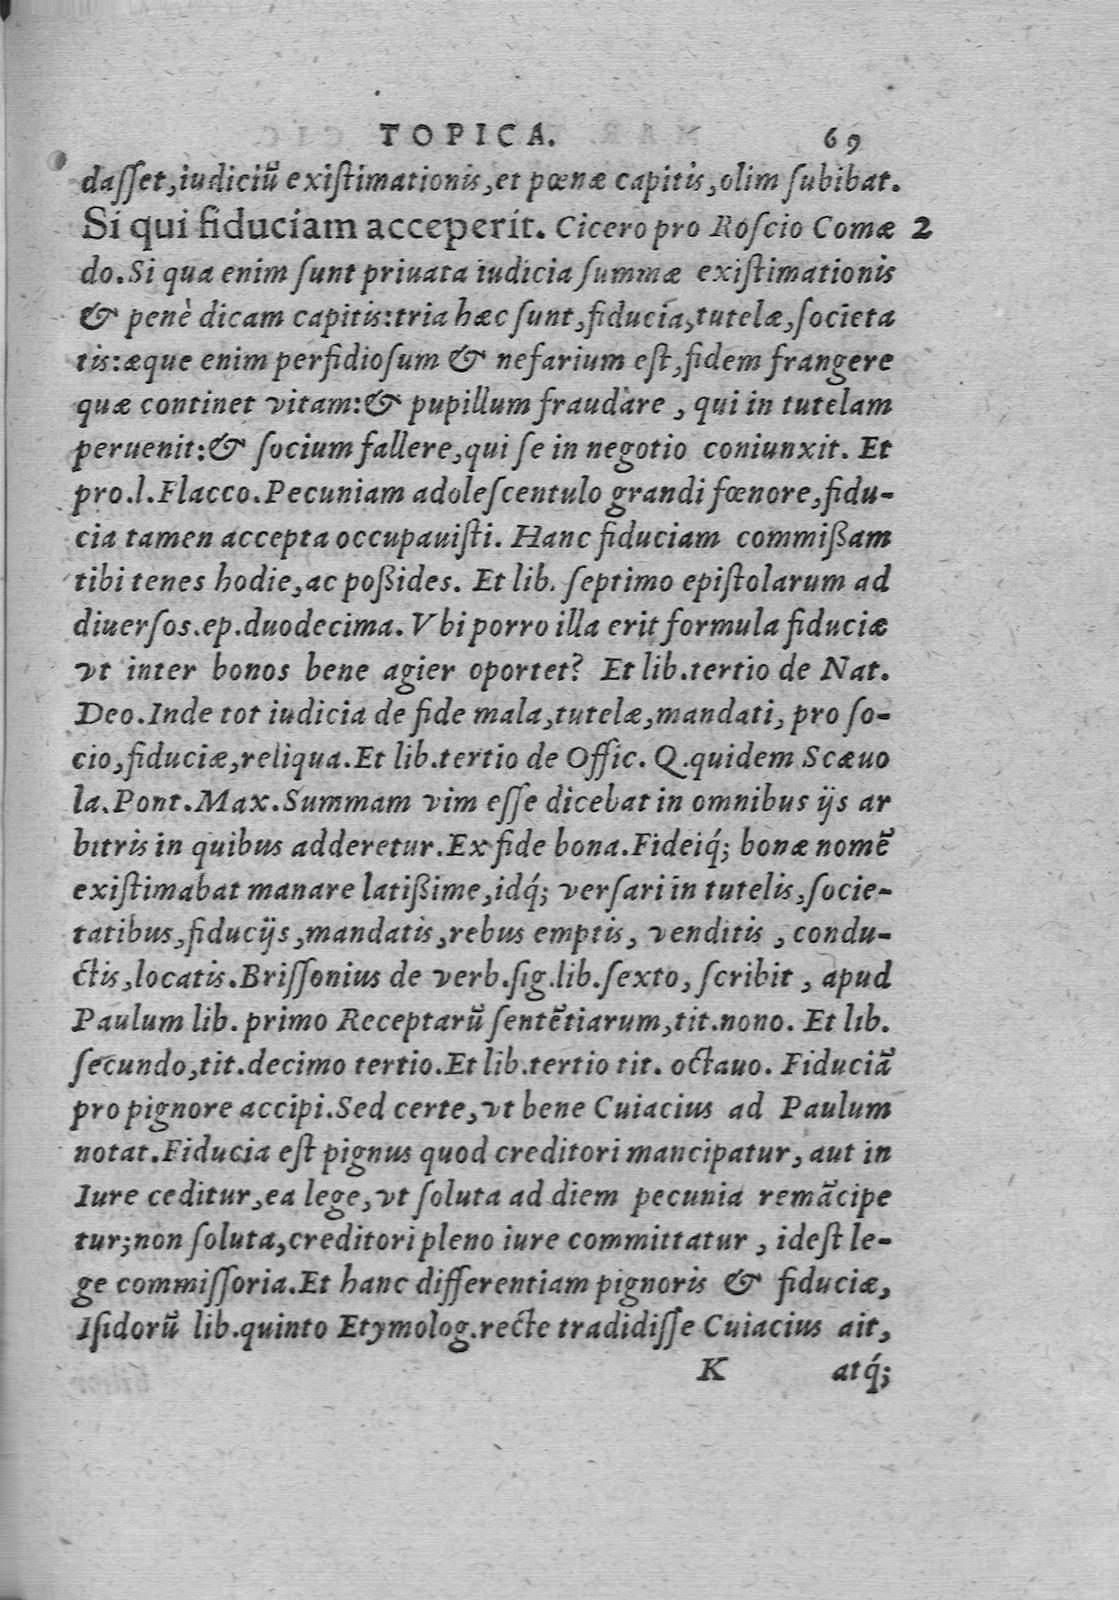 TOPICA. 69
dasset, iudiciũ existimationis, et pœnæ capitis, olim subibat.
Si qui fiduciam acceperit. Cicero pro Roscio Comæ 2
do. Si qua enim sunt priuata iudicia summæ existimationis
& penè dicam capitis: tria hæc sunt, fiducia, tutelæ, societa
tis: æque enim perfidiosum & nefarium est, fidem frangere
quæ continet vitam: & pupillum fraudare, qui in tutelam
peruenit: & socium fallere, qui se in negotio coniunxit. Et
pro.l.Flacco. Pecuniam adolescentulo grandi fœnore, fidu-
cia tamen accepta occupauisti. Hanc fiduciam commißam
tibi tenes hodie, ac poßides. Et lib. septimo epistolarum ad
diuersos.ep.duodecima. Vbi porro illa erit formula fiduciæ
vt inter bonos bene agier oportet? Et lib.tertio de Nat.
Deo. Inde tot iudicia de fide mala, tutelæ, mandati, pro so-
cio, fiduciæ, reliqua. Et lib.tertio de Offic. Q.quidem Scæuo
la. Pont. Max. Summam vim esse dicebat in omnibus ijs ar
bitris in quibus adderetur. Ex fide bona. Fideiq́; bonæ nomẽ
existimabat manare latißime, idq́; versari in tutelis, socie-
tatibus, fiducijs, mandatis, rebus emptis, venditis, condu-
ctis, locatis. Brissonius de verb.sig.lib.sexto, scribit, apud
Paulum lib. primo Receptarũ sentẽtiarum, tit.nono. Et lib.
secundo, tit.decimo tertio. Et lib.tertio tit. octauo. Fiduciã
pro pignore accipi. Sed certe, vt bene Cuiacius ad Paulum
notat. Fiducia est pignus quod creditori mancipatur, aut in
Iure ceditur, ea lege, vt soluta ad diem pecunia remãcipe
tur; non soluta, creditori pleno iure committatur, idest le-
ge commissoria. Et hanc differentiam pignoris & fiduciæ,
Isidorũ lib.quinto Etymolog.recte tradidisse Cuiacius ait,
K atq́;